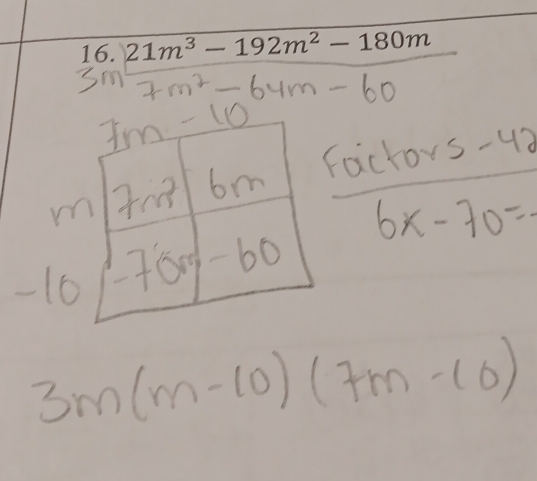 16. 21m³ − 192m² − 180m
3m 7m² − 64m − 60
7m − 10
m 7m² 6m
−10 −70m −60
Factors −42
6x − 70 = -
3m(m−10)(7m−10)